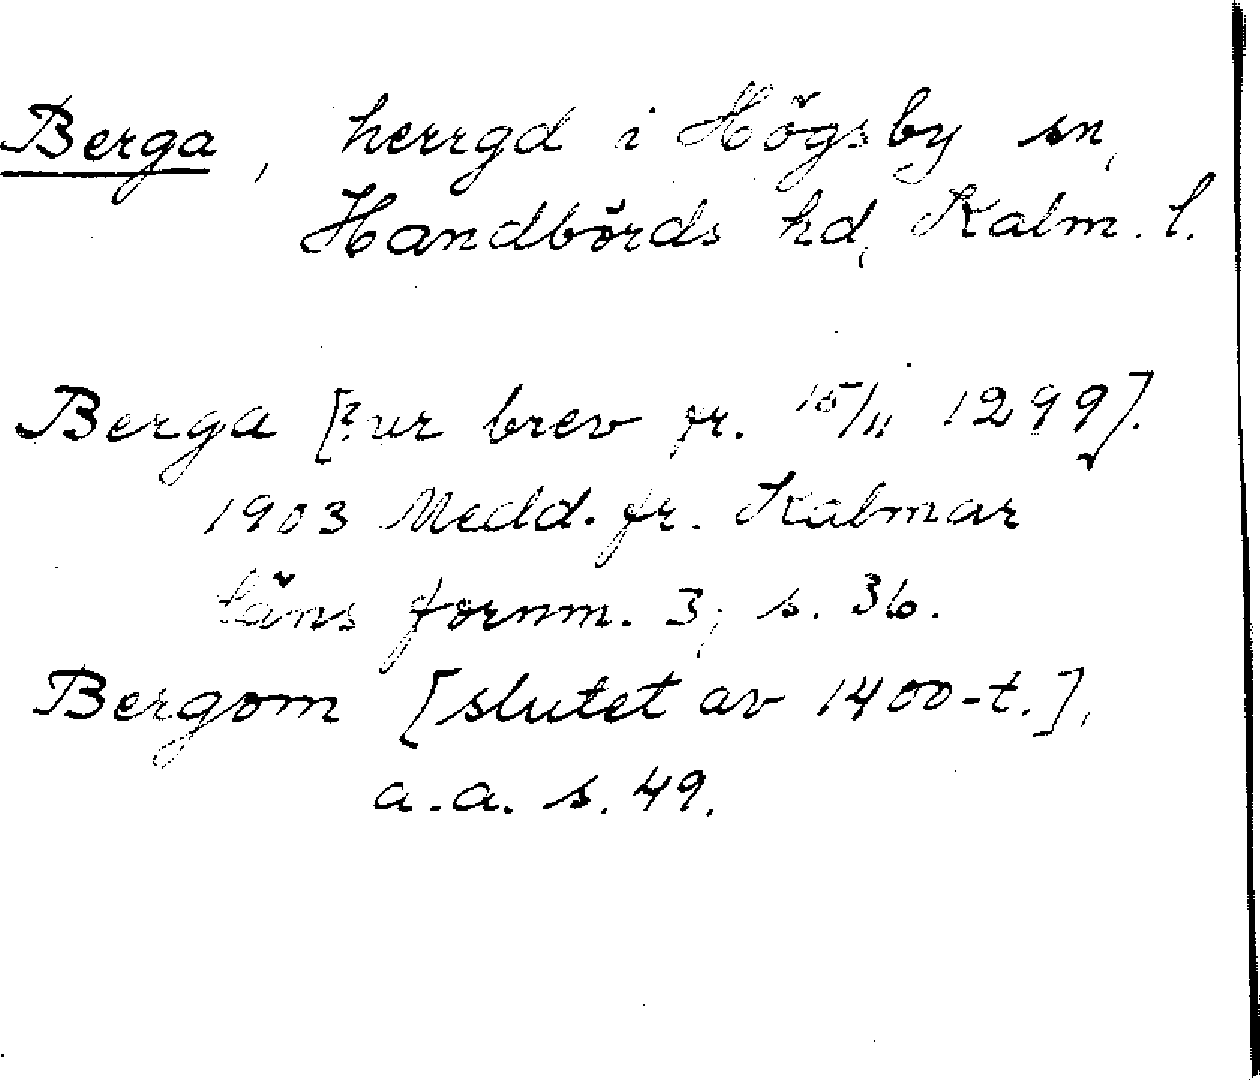 Berga, herrgd i Högsby sn,
Handbörds hd, Kalm. l.
Berga [? ur brev fr. 15/11 1299].
1903 Medd. fr. Kalmar
läns fornm. 3, s. 36.
Bergom [slutet av 1400-t.],
a.a. s. 49.